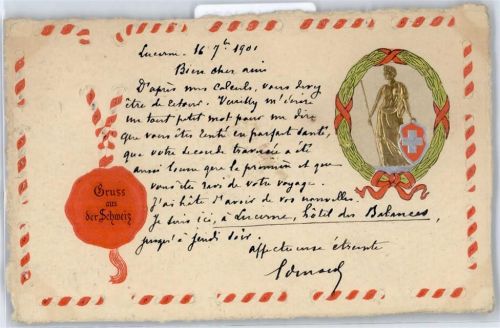 Lucerne 16 7bre 1901
Bien cher ami
D'après mes calculs, vous devez
être de retour. Veuillez m'écrire
un tout petit mot pour me dire
que vous êtes rentré en parfait santé,
que votre seconde traversée a été
aussi bonne que la première et que
vous êtes ravi de votre voyage.
J'ai hâte d'avoir de vos nouvelles.
Je suis ici, à Lucerne, hôtel des Balances,
jusqu'à jeudi soir.
affectueuse étreinte
Gruss
aus
der Schweiz